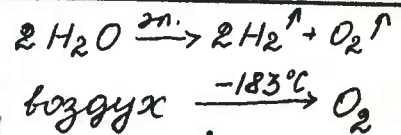 2H₂O —эл.→ 2H₂↑ + O₂↑
воздух —-183°C→ O₂